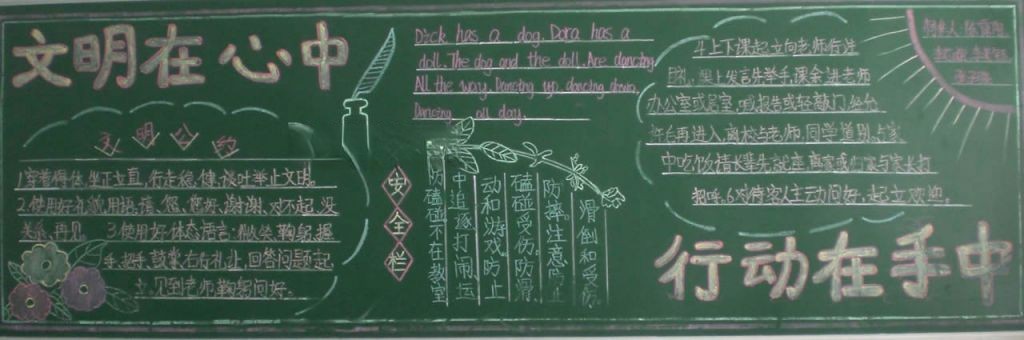 文明在心中
文明公约
1穿着得体,坐下立直,行走稳健,谈吐举止文明。
2使用好礼貌用语:请、您、您好、谢谢、对不起、没
关系、再见。 3使用好体态语言:微笑、鞠躬、握
手、招手、鼓掌、右行礼让、回答问题起
立、见到老师鞠躬问好。
Dick has a dog. Dora has a
doll. The dog and the doll. Are dancing
All the way. Dancing up, dancing down,
Dancing all day.
安全栏
防磕碰不在教室
中追逐打闹、运
动和游戏。防止
磕碰受伤。防滑、
防摔。注意防止
滑倒和受伤
4上下课起立向老师行注
目礼,课上发言先举手,课余进老师
办公室或居室,喊报告或轻敲门经允
许后再进入离校与老师、同学道别,与家
中吃饭请长辈先就座,离家或归家与家长打
招呼。6对待客人主动问好、起立欢迎。
行动在手中